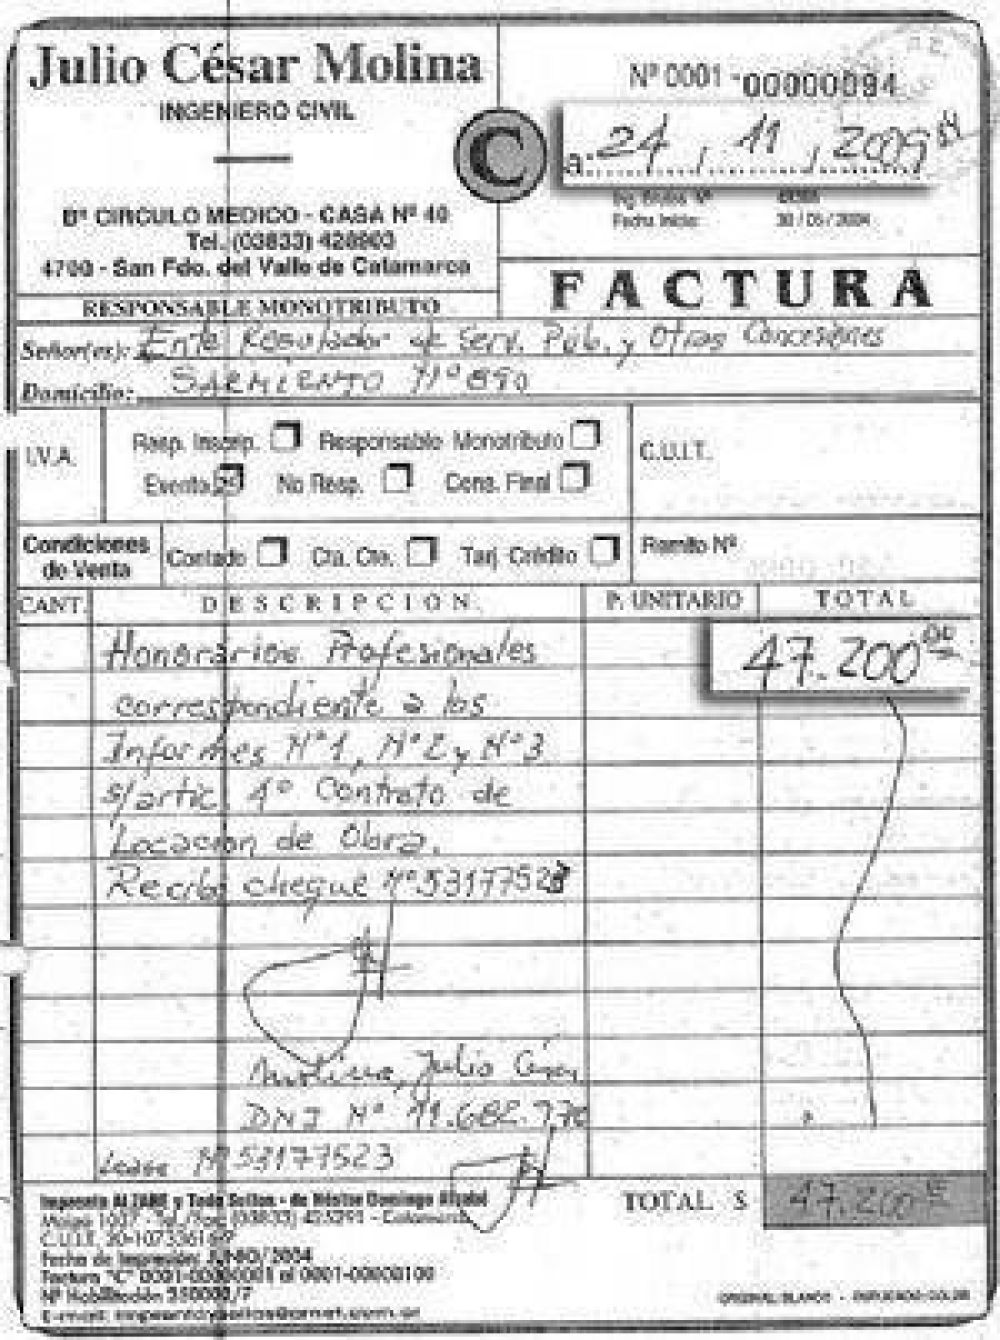 Julio César Molina
INGENIERO CIVIL
Bº CIRCULO MEDICO - CASA Nº 40
Tel. (03833) 428903
4700 - San Fdo. del Valle de Catamarca
RESPONSABLE MONOTRIBUTO
C
Nº 0001 - 00000094
a: 24 / 11 / 2009
Ing. Brutos Nº
Fecha Inicio: 30/05/2004
FACTURA
Señor(es): Ente Regulador de Serv. Púb. y Otras Concesiones
Domicilio: SARMIENTO Nº 890
I.V.A.
Resp. Inscrip. Responsable Monotributo
Exento No Resp. Cons. Final
C.U.I.T.
Condiciones de Venta
Contado Cta. Cte. Tarj. Crédito
Remito Nº
CANT. DESCRIPCION P. UNITARIO TOTAL
Honorarios Profesionales 47.200
correspondiente a los
Informes Nº1, Nº2 y Nº3
s/artic. 4º Contrato de
Locacion de Obra.
Recibo cheque Nº 53177523
Molina, Julio César
DNI Nº 11.682.770
Nº 53177523
TOTAL $ 47.200
Imprenta ALZABE y Todo Sellos - de Néstor Domingo
1007 - Tel./Fax (03833) 425291 - Catamarca
C.U.I.T.
Fecha de Impresión: JUNIO/2004
Factura "C" 0001-00000001 al 0001-00000100
Nº Habilitación
E-mail:
ORIGINAL: BLANCO - DUPLICADO: COLOR